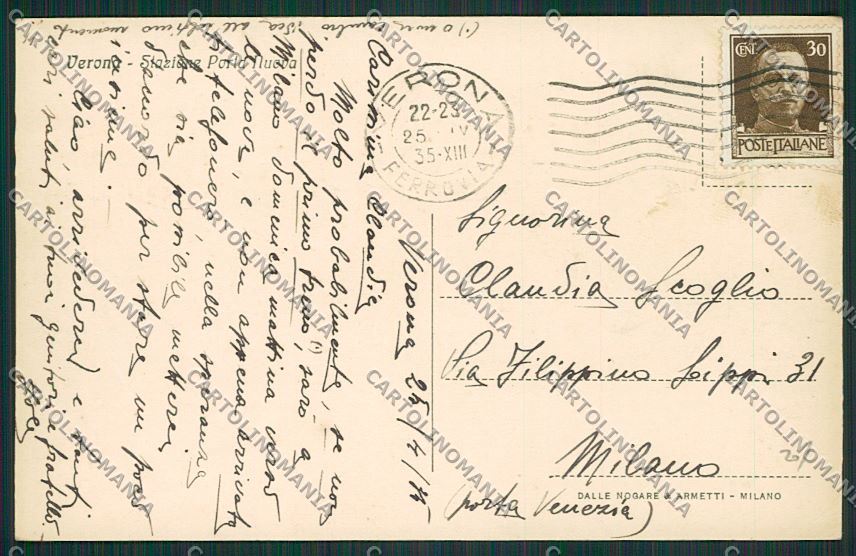 (1) o cambio idea all'ultimo momento
Verona - Stazione Porta Nuova
Verona 25/4/35
Carissima Claudia
Molto probabilmente, se non
perdo il primo treno(1), sarò a
Milano domenica mattina verso
le nove, e non appena arrivato
ti telefonerò, nella speranza
che sia possibile metterci
d'accordo per stare un poco
insieme.
Ciao, arrivederci e tanti
cari saluti ai tuoi genitori e fratello
VERONA
22-23
25 IV
35-XIII
FERROVIA
CENT. 30
POSTE ITALIANE
Signorina
Claudia Scoglio
Via Filippino Lippi 31
Milano
(porta Venezia)
DALLE NOGARE & ARMETTI - MILANO
CARTOLINOMANIA